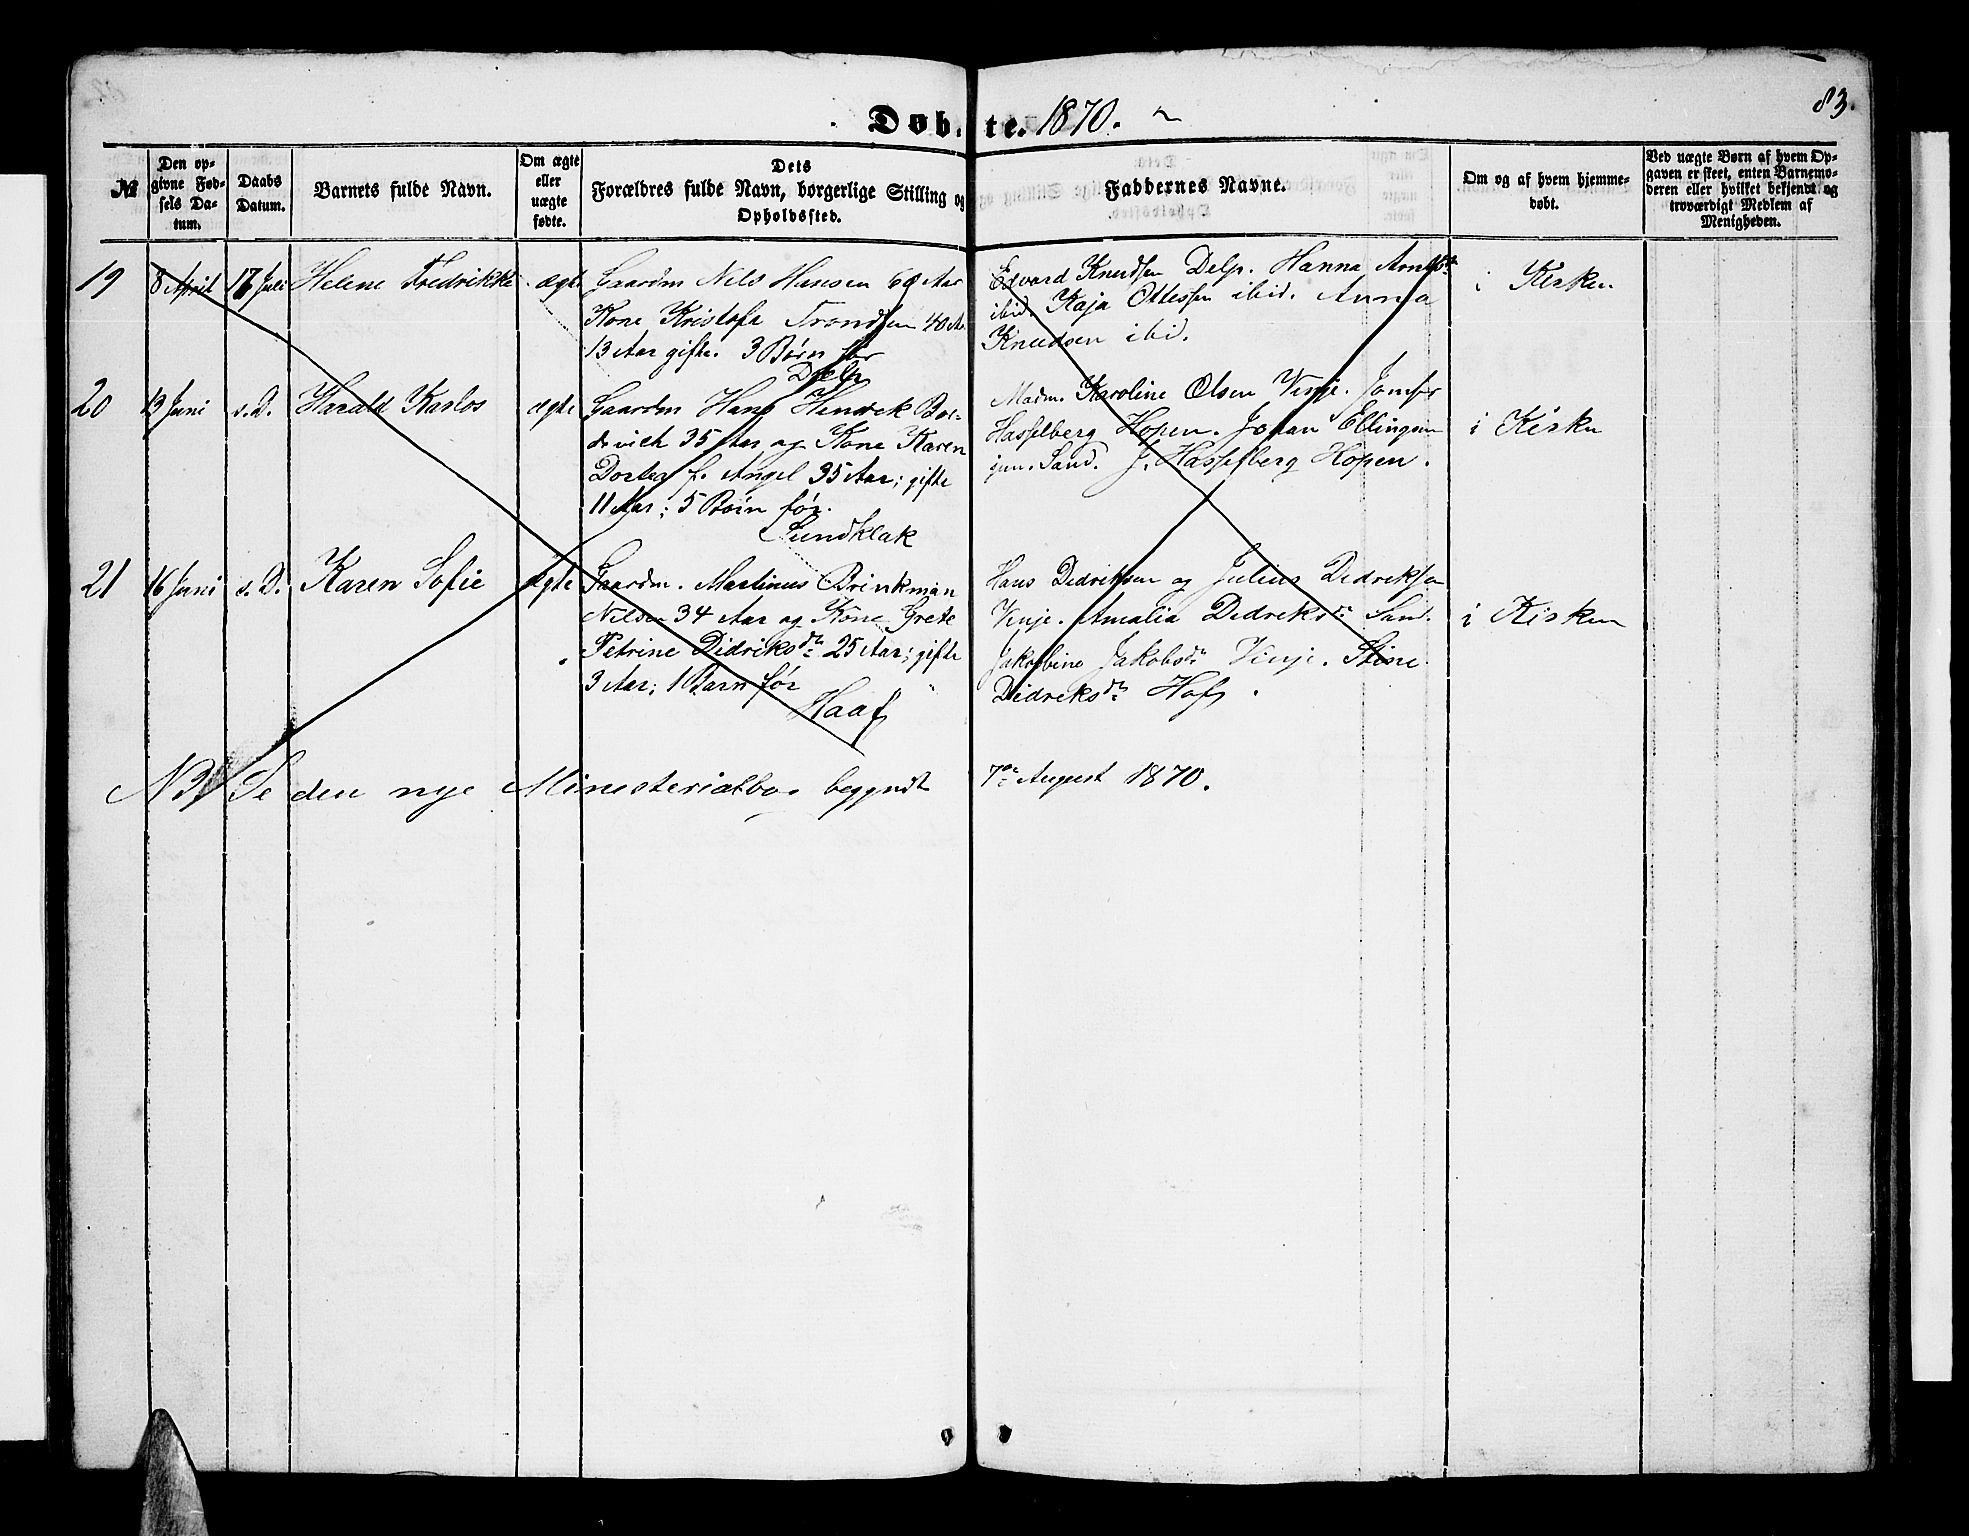 83.
Døbte. 1870.
№
Den op-
givne Fød-
sels Da-
tum.
Daabs
Datum.
Barnets fulde Navn.
Om ægte
eller
uægte
fødte.
Dets
Forældres fulde Navn, borgerlige Stilling og
Opholdssted.
Faddernes Navne.
Om og af hvem hjemme-
døbt.
Ved uægte Børn af hvem Op-
gaven er skeet, enten Barnemo-
deren eller hvilket bekjendt og
troværdigt Medlem af
Menigheden.
19 8 April 17 Juli Helene Fredrikke ægte
Gaardm Nils Hansen 60 Aar
Kone Kristofa Trondsen 40 A.
13 Aar gifte. 3 Børn før
Delp
Edvard Knudsen Delp. Hanna
ibid. Kaja Ottessen ibid. Anna
Knudsen ibid.
i Kirken
20 13 Juni s. D. Harald Karlos ægte
Gaardm Hans Hendrek Bor-
devich 35 Aar og Kone Karen
Dortea f. Angel 35 Aar; gifte
11 Aar; 5 Børn før.
Sundklak
Madm. Karoline Olsen Vinje. Jomfr
Hasselberg Hopen. Johan Ellingsen
jun. Sand. J. Hasselberg Hopen.
i Kirken
21 16 Juni s. D. Karen Sofie ægte
Gaardm. Martinus Brinkman
Nilsen 34 Aar og Kone Grete
Petrine Didriksdtr 25 Aar; gifte
3 Aar; 1 Barn før
Haaf
Hans Didriksen og Julius Didriksen
Vinje. Amalia Didreksdtr Sand.
Jakobbine Jakobsdtr Vinje. Stine
Didreksdtr Hof.
i Kirken
NB/ Se den nye Ministerialbog begyndt 7de August 1870.